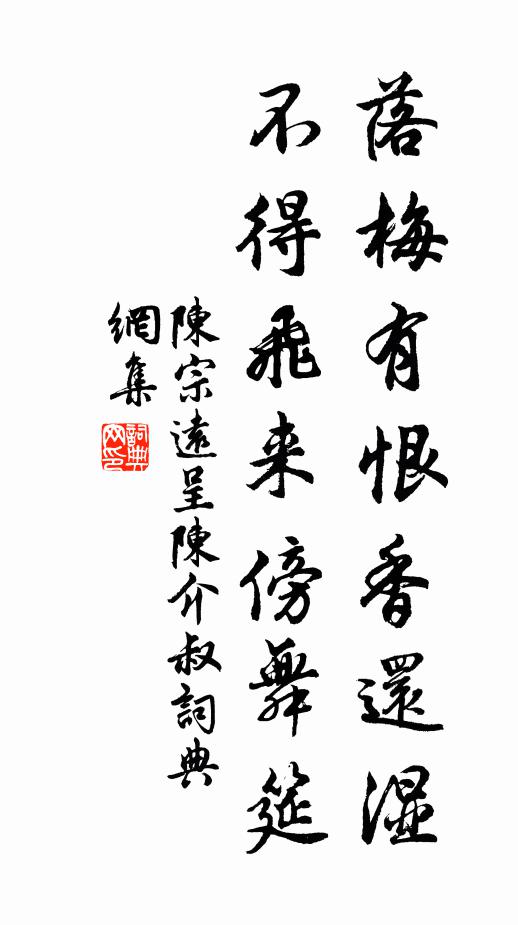 落梅有恨香還濕
不得飛来傍舞筵
陳宗遠呈陳介叔詞典
網集
詞典网印